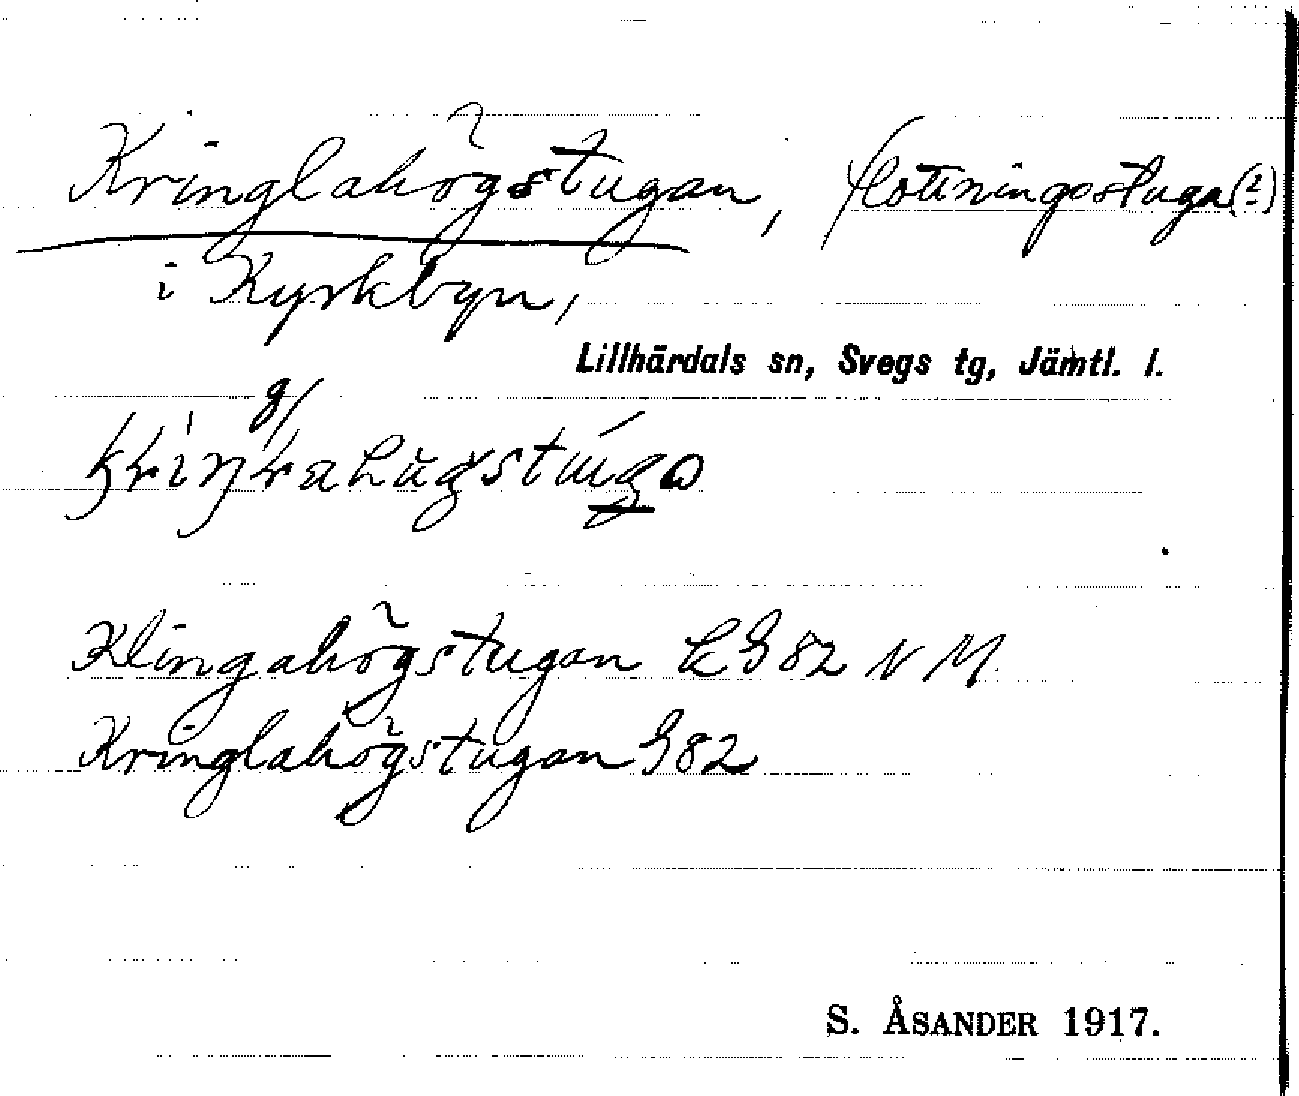 Kringlahögstugan, flottningsstuga (?)
i Kyrkbyn,
Lillhärdals sn, Svegs tg, Jämtl. l.
Klingahögstugan LG 82 N M
Kringlahögstugan G 82
S. ÅSANDER 1917.